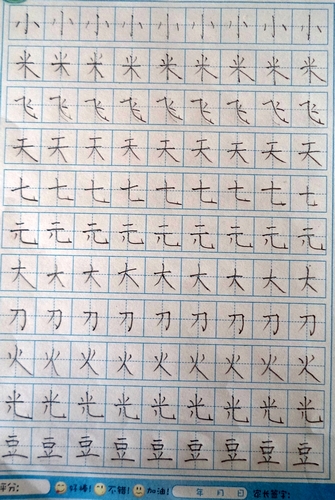 小小小小小小小小小
米米米米米米米米米
飞飞飞飞飞飞飞飞飞
天天天天天天天天天
七七七七七七七七七
元元元元元元元元元
大大大大大大大大大
刀刀刀刀刀刀刀刀刀
火火火火火火火火火
光光光光光光光光光
豆豆豆豆豆豆豆豆豆
评分: 好棒! 不错! 加油! 年 月 日 家长签字: